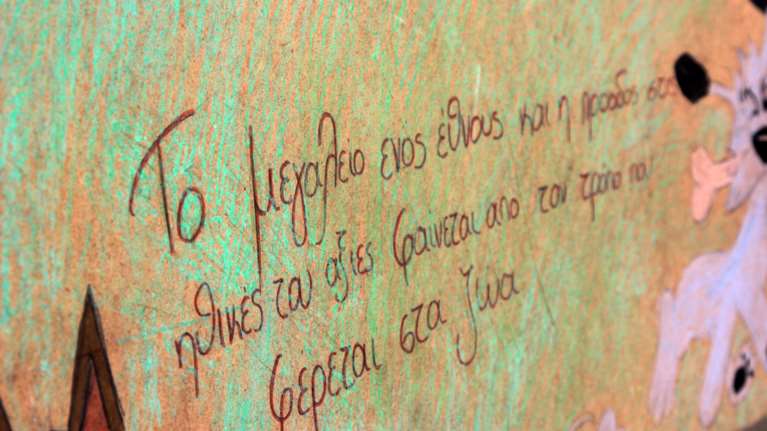 Το μεγαλειο ενός έθνους και η προοδος στις
ηθικές του αξιες φαίνεται απο τον τρόπο που
φέρεται στα ζώα